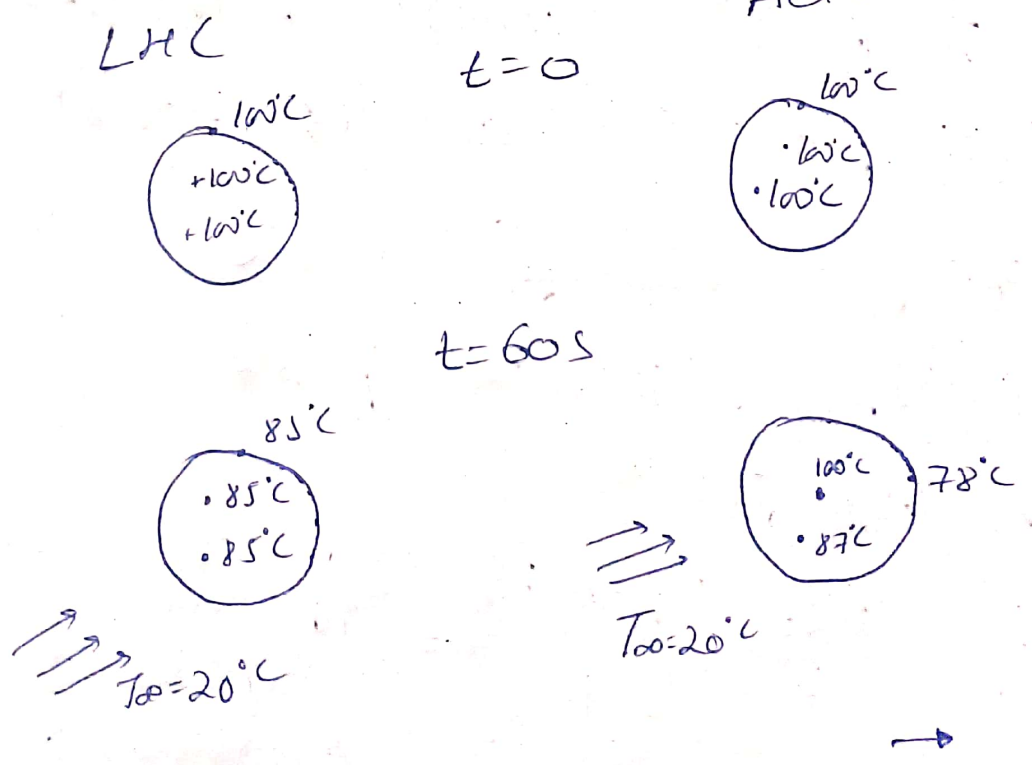 LHC
t=0
100°C
+100°C
+100°C
100°C
·100°C
·100°C
t=60s
85°C
·85°C
·85°C
T∞=20°C
100°C
78°C
·87°C
T∞=20°C